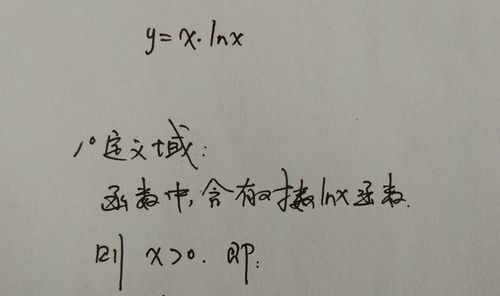 y=x·lnx
1°定义域:
函数中,含有对数lnx函数.
则 x>0. 即: